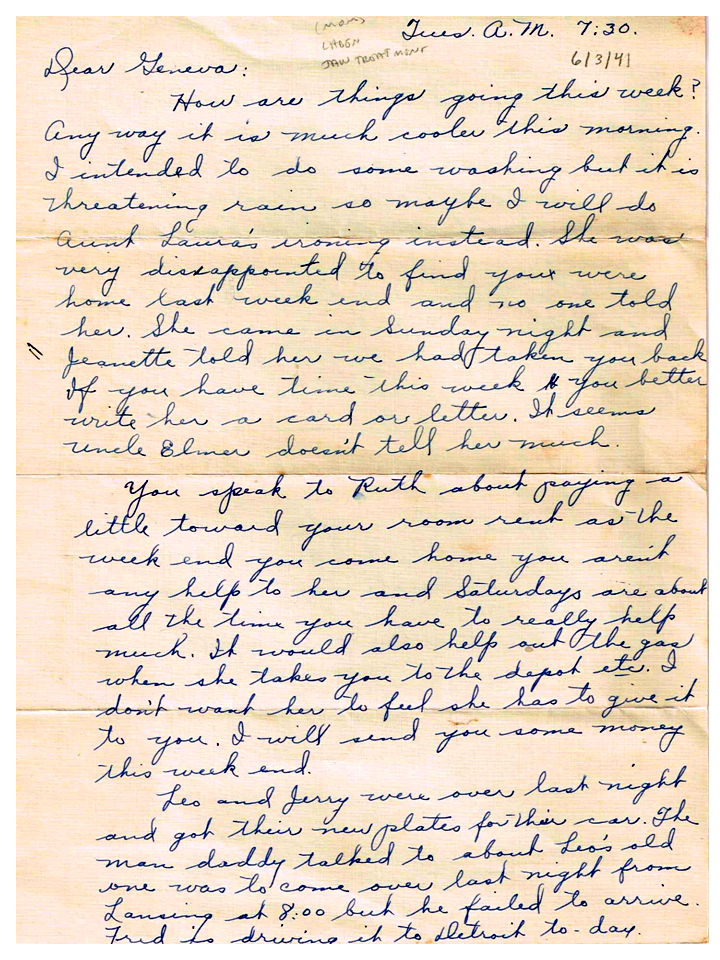 (MOM)
Tues. A.M. 7:30.
LHEEN
JAW TREATMENT
6/3/41
Dear Geneva:
How are things going this week?
Any way it is much cooler this morning.
I intended to do some washing but it is
threatening rain so maybe I will do
Aunt Laura's ironing instead. She was
very dissappointed to find you were
home last week end and no one told
her. She came in Sunday night and
Jeanette told her we had taken you back
If you have time this week you better
write her a card or letter. It seems
Uncle Elmer doesn't tell her much.
You speak to Ruth about paying a
little toward your room rent as the
week end you come home you aren't
any help to her and Saturdays are about
all the time you have to really help
much. It would also help out the gas
when she takes you to the depot etc. I
don't want her to feel she has to give it
to you. I will send you some money
this week end.
Leo and Jerry were over last night
and got their new plates for their car. The
man daddy talked to about Leo's old
one was to come over last night from
Lansing at 8:00 but he failed to arrive.
Fred is driving it to Detroit to-day.